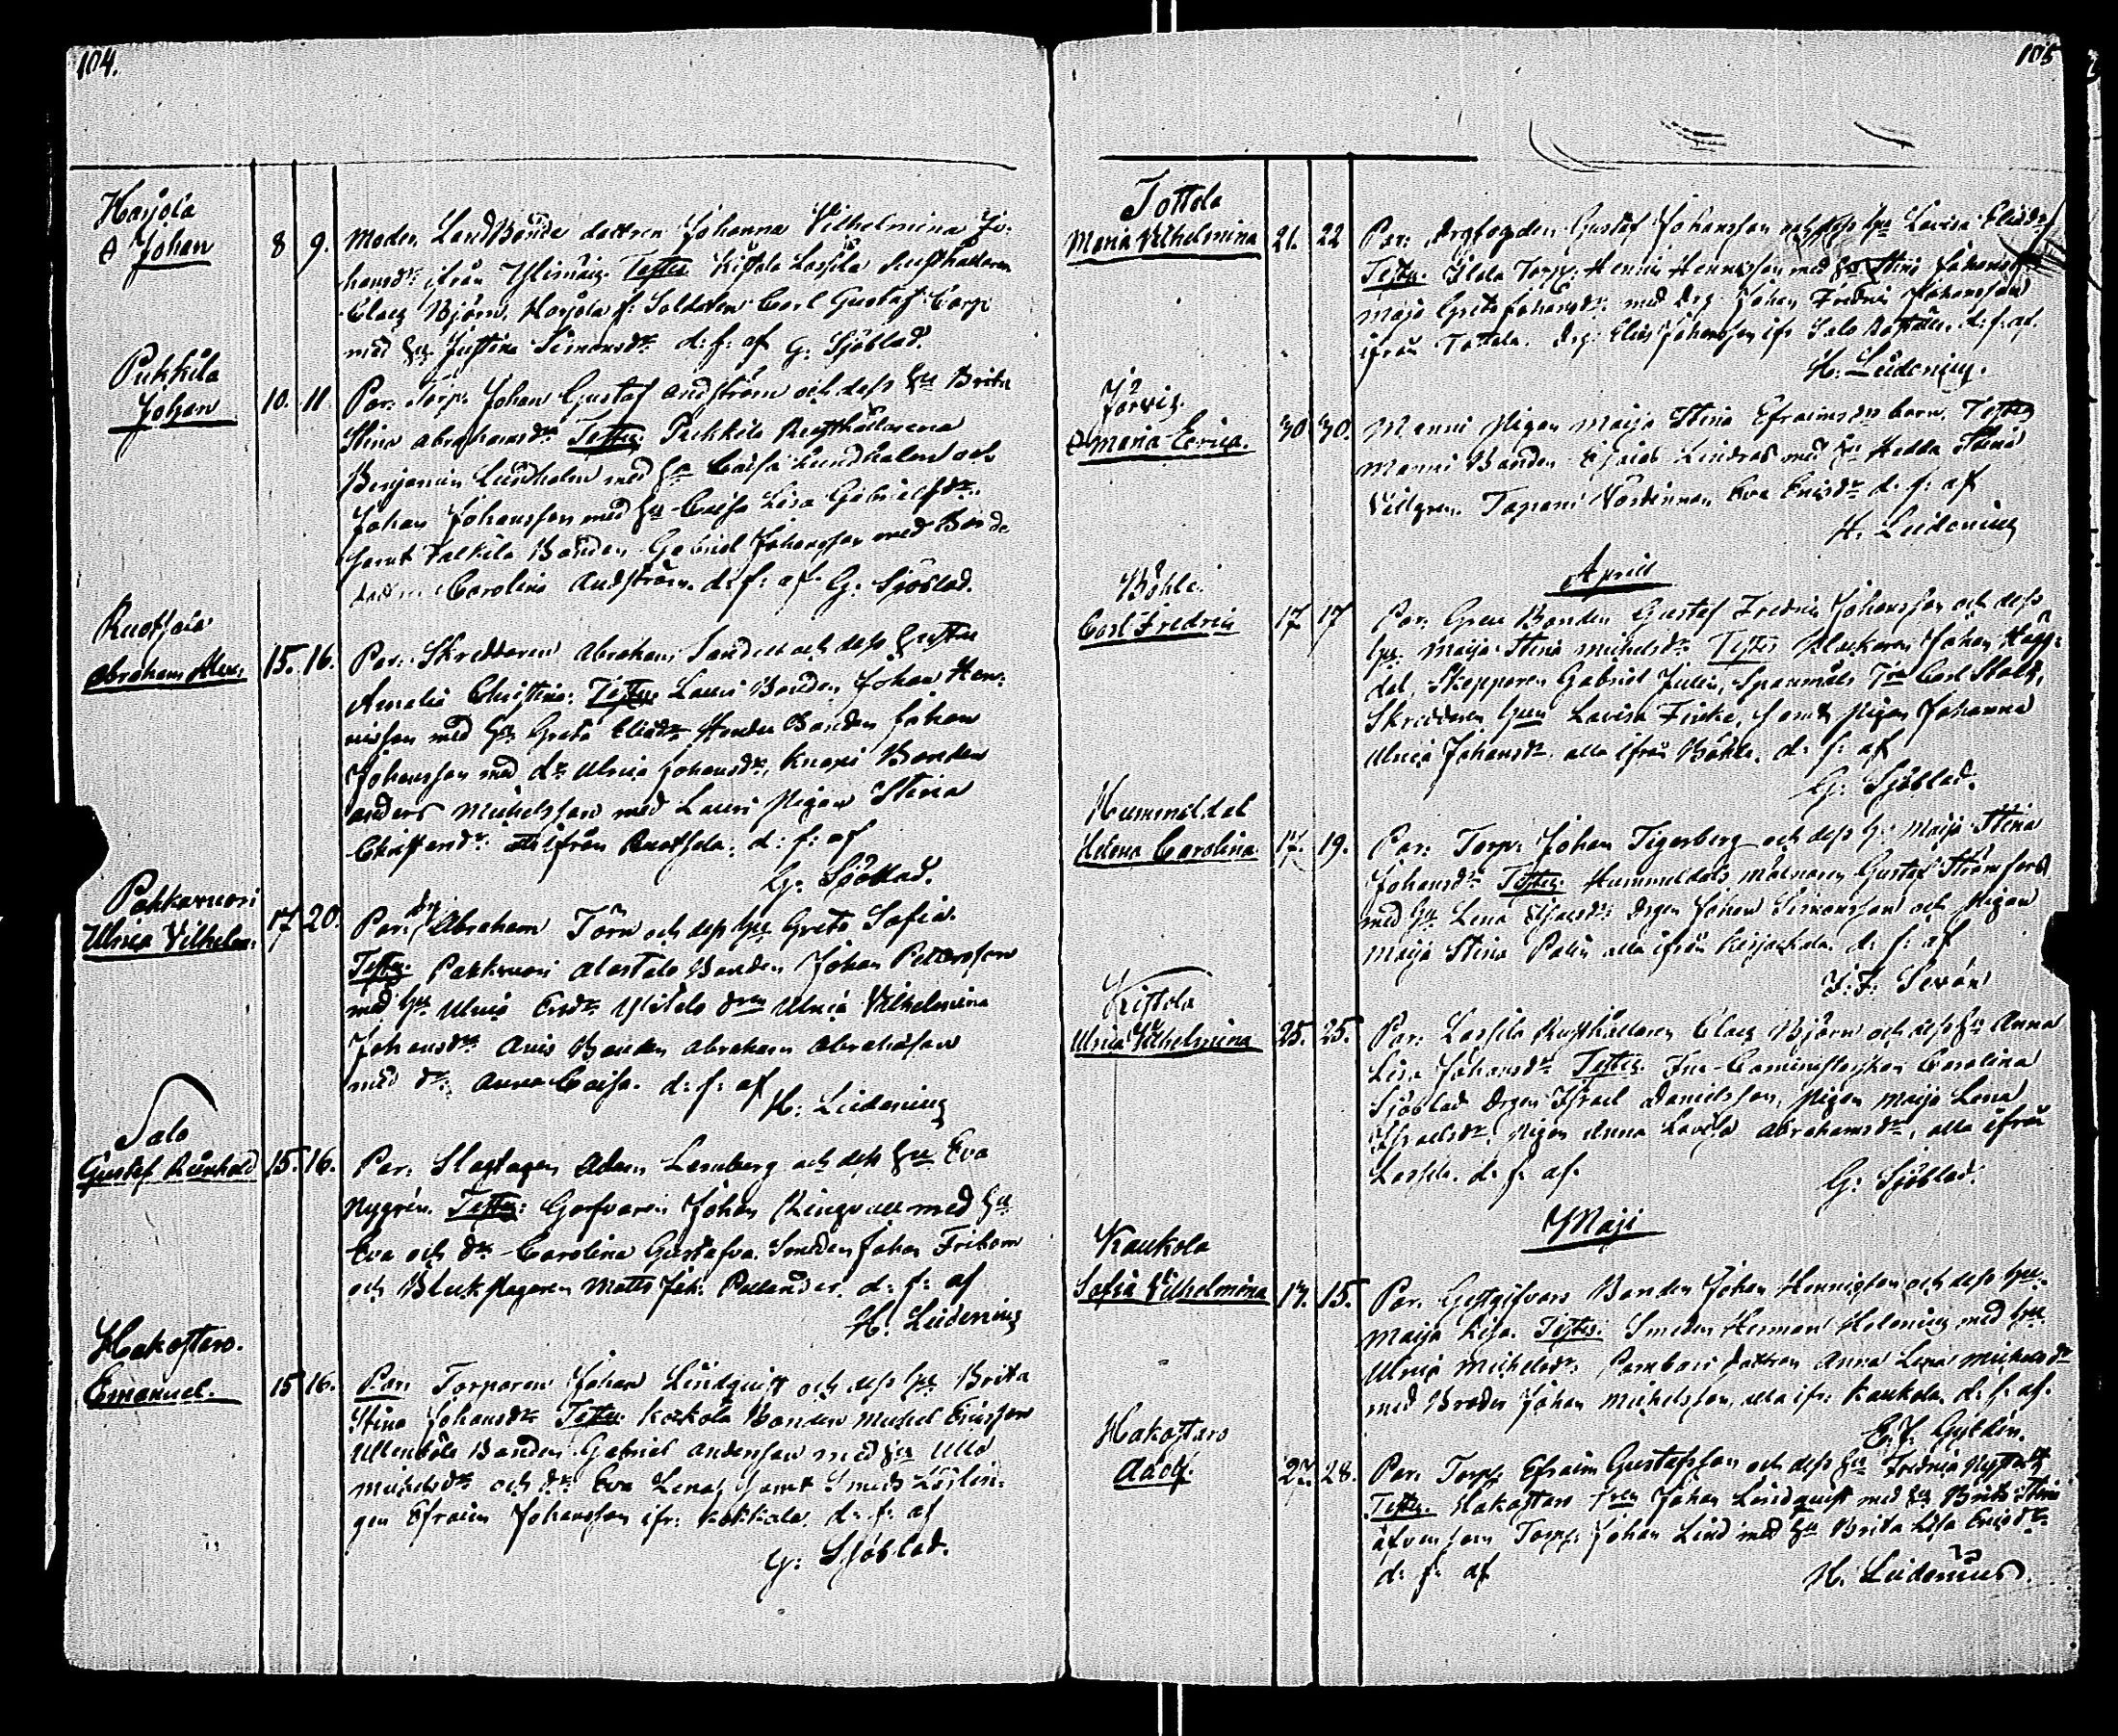 104.
Harjola
A Johan 8 9. Moder LandBonde dottren Johanna Vilhelmina Jo-
hansdr ifrån Ylimaig. Testes Kistola Lassila Rusthållaren
Claes Björn, Harjola f: Soldaten Carl Gustaf Carp
med hu Justina Simonsdr d: f: af G: Sjöblad.
Pukkila
Johan 10. 11 Par: Torp: Johan Gustaf Andström och dess hu Brita
Stina Abrahamsdr Testes Pukkila Rusthållarena
Benjamin Lundholm med hu Caisa Lundholm och
Johan Johansson med hu Caisa Lisa Gabrielsdr
samt Falkila Bonden Gabriel Johansson med Bonde
dottren Carolina Andström. d: f: af G. Sjöblad.
Ruotsala
Abraham Alex: 15. 16. Par: Skreddaren Abraham Sandell och dess hustru
Amalia Christina: Testes Lauri Bonden Johan Hen-
ricsson med hu Greta Eliædr Bonden Johan
Johansson med dr Ulrica Johansdr, Knapi Bonden
Anders Michelsson med Lauri Pigan Stina
Christersdr ifrån Ruotsala. d: f: af
G: Sjöblad.
Pakkavuori
Ulrica Vilhelm: 17 20. Par: drg Abraham Törn och dess hu Greta Sofia.
Testes: Pakkavuori Alastalo Bonden Johan Petersson
med hu Ulrica Ersdr Ylistalo dren Ulrica Vilhelmina
Johansdr Anis Bonden Abraham Abrahamsson
med dr: Anna Caisa. d: f: af
H: Lidenius
Salo
Gustaf Reinhold 15. 16. Par: Slagtagen Adam Lernberg och dess hu Eva
Nygrén. Testes: Garfvaren Johan Ringvall med hu
Eva och dr Carolina Gustafva. Smeden Johan Fribom
och Bleckslagaren Matts Joh: Pollander. d: f: af
H. Lidenius
Hakostaro.
Emanuel. 15 16. Par: Torparen Johan Lindquist och dess hu Brita
Stina Johansdr Testes: Korkola Bonden Michel Ericsson
Ullenböle Bonden Gabriel Andersson med hu Ulla
Michelsdr och dr Eva Lena, samt Smeds Lärlin-
gen Efraim Johansson ifr: Kokkala. d: f: af
G: Sjöblad.
105
Tottola
Maria Vilhelmina 21. 22 Par: Drgfogden Gustaf Johansson och dess hu Lovisa Eliædr
Testes. Torp: Henric Henricsson med hu Stina Johansdr
Maja Greta Johansdr med drg: Johan Fredric Johansson
ifrån Tottola. Drg: Elias Johansson ifr Salo d: f: af.
H. Lidenius.
Järvis.
A Maria Erica. 30 30. Manni Pigan Maija Stina Efraimsdrs barn. Testes
Manni Bonden Esaias Lindroos med hu Hedda Stina
Villgren. Tapani Värdinnan Eva Ericsdr d. f: af
H. Lidenius
April
Böhle.
Carl Fredric 17 17 Par: Greu Bonden Gustaf Fredric Johansson och dess
hu Maija Stina Michelsdr Testes Klockaren Johan Hägg-
dal, Skepparen Gabriel Julin, Spannmåls Carl Stolt,
Skreddaren hu Lovisa Finke, samt Pigan Johanna
Ulrica Johansdr alla ifrån Böhle. d: f: af
G. Sjöblad.
Hummeldal
Helena Carolina. 17. 19. Par: Torp: Johan Tigerberg och dess h: Maija Stina
Johansdr Testes. Hummeldals Mölnaren Gustaf Strömfors
med hu Lena Esaiedr: drgen Johan Simonsson och Pigan
Maija Stina Palin alla ifrån Kirjackala. d: f: af
J. F. Sevón
Kistola
Ulrica Vilhelmina 25. 25. Par: Lassila Rusthållaren Claes Björn och dess hu Anna
Lisa Johansdr Testes: Fru Cominsterskan Carolina
Sjöblad Drgen Israel Danielsson, Pigan Maija Lena
Israelsdr, Pigan Anna Lovisa Abrahamsdr, alla ifrån
Lassila. d: f: af.
G: Sjöblad.
Maji
Kaukola
Sofia Vilhelmina 14. 15. Par: Gestgifvare Bonden Johan Henricsson och dess hu
Maija Lisa. Testes: Smeden Herman Helenius med hu
Ulrica Michelsdr. dottren Anna Lena Michelsdr
med Broder Johan Michelsson, alla ifr: Kaukola. d: f: af.
E. J. Gyldén.
Hakostaro
Adolf. 27. 28. Par: Torp: Efraim Gustafsson och dess hu Fredrica
Testes. Hakostaro Johan Lindquist med hu Brita Stina
äfvensom Torp: Johan Lind med hu Brita Lisa Ericsdr.
d: f: af
H. Lidenius.